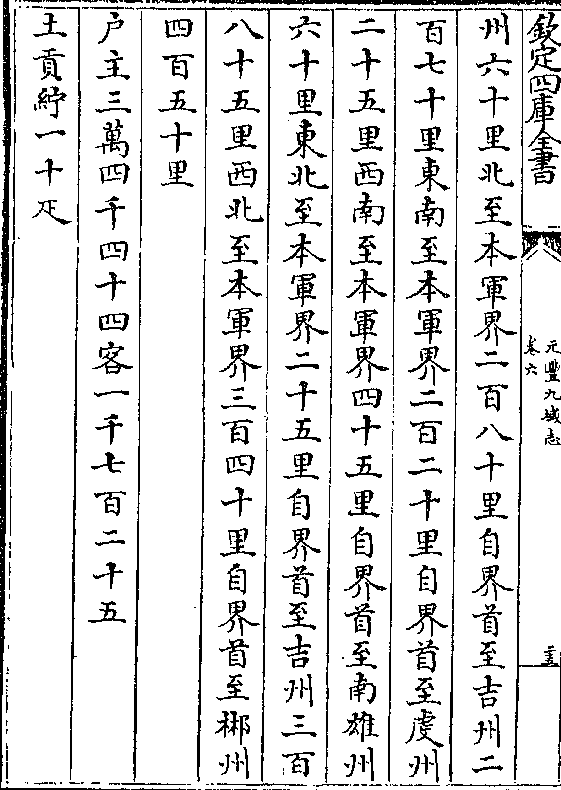 欽定四庫全書
元豐九域志
卷六
州六十里北至本軍界二百八十里自界首至吉州二
百七十里東南至本軍界二百二十里自界首至虔州
二十五里西南至本軍界四十五里自界首至南雄州
六十里東北至本軍界二十五里自界首至吉州三百
八十五里西北至本軍界三百四十里自界首至郴州
四百五十里
户主三萬四千四十四客一千七百二十五
土貢紵一十疋